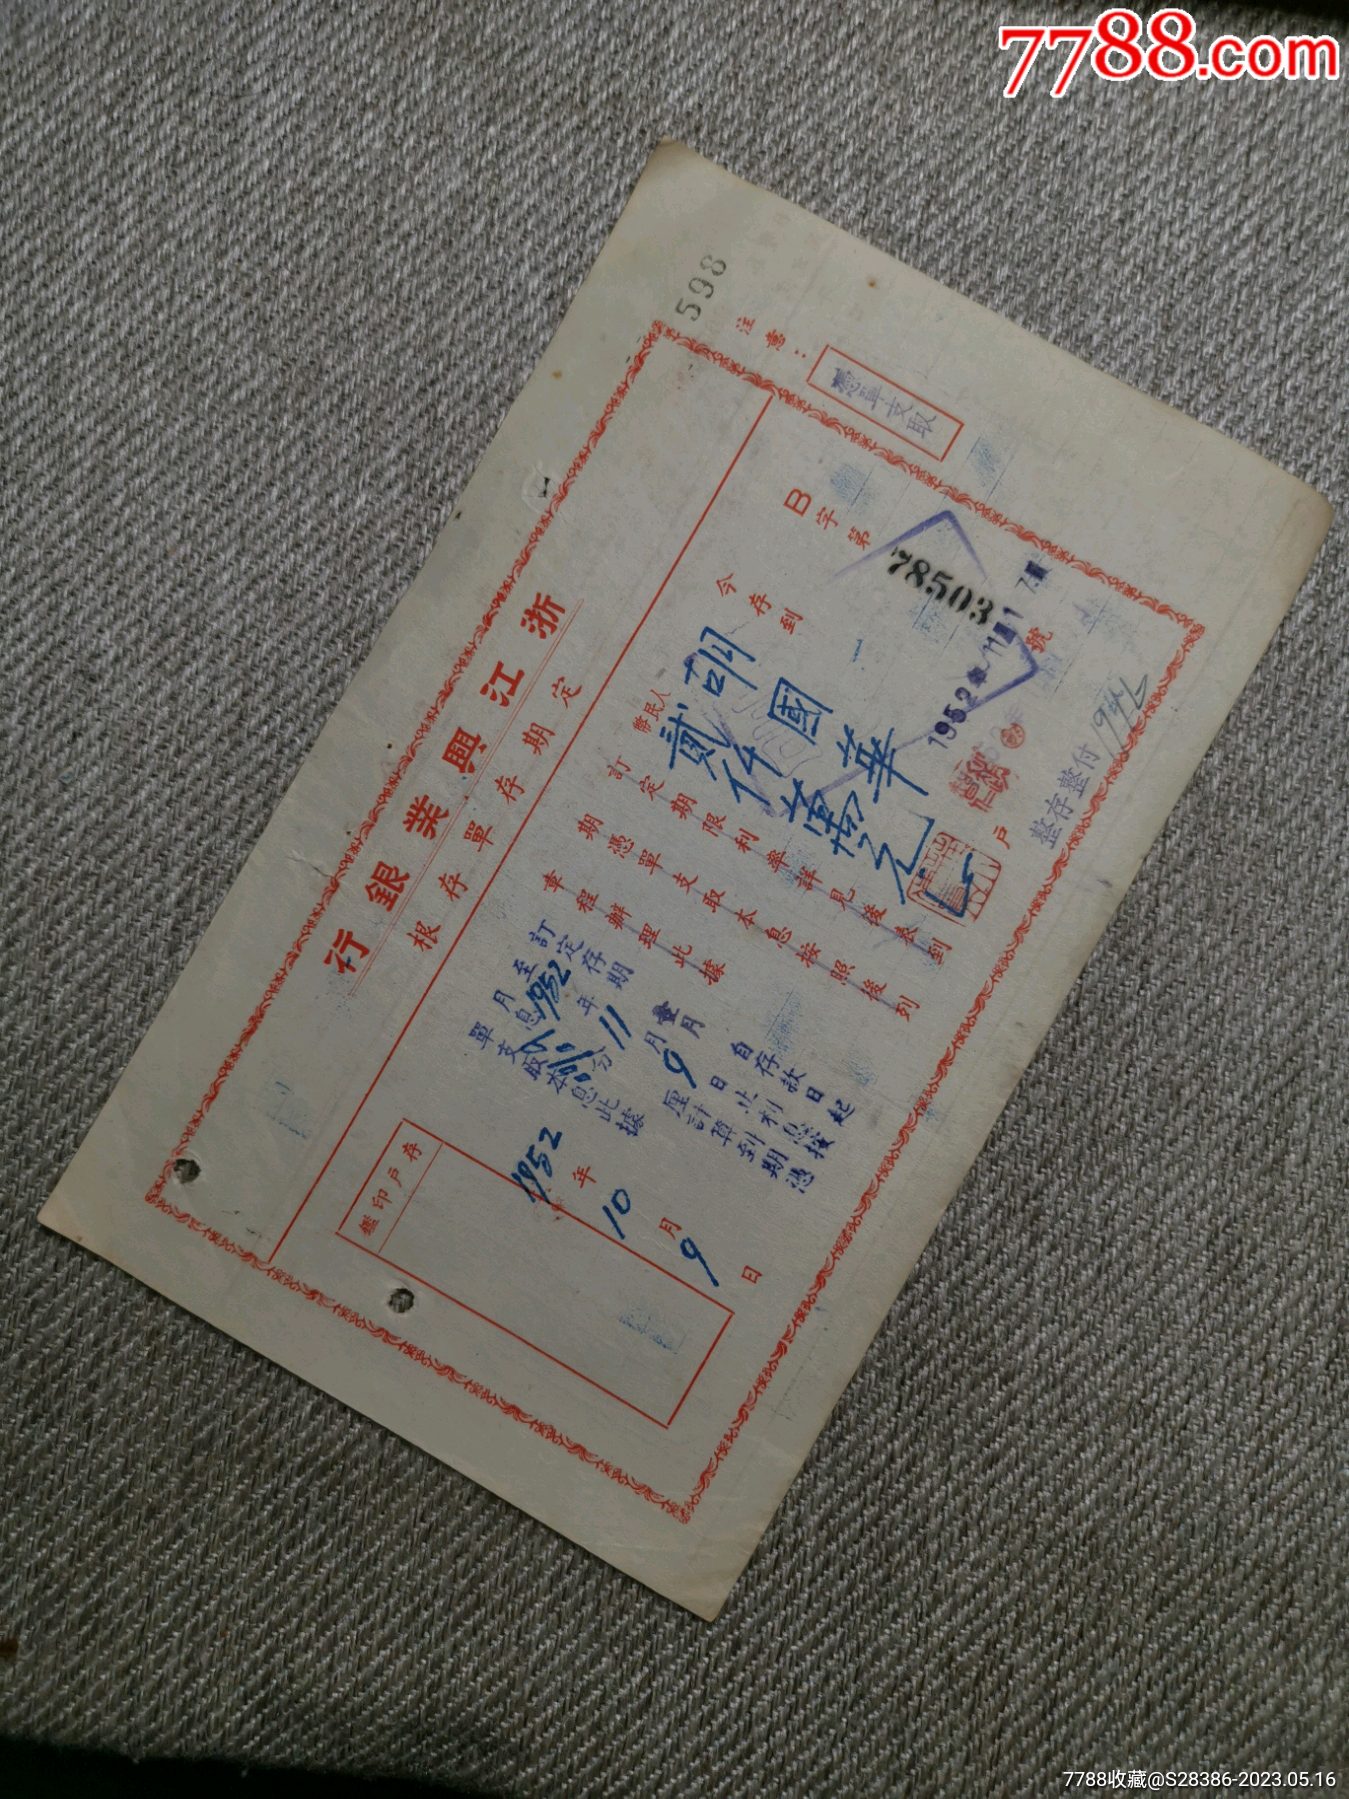 7788.com
598
注意：
憑單支取
浙江興業銀行
定期存單存根
B字第78503號
1952年11月17
今存到
胡國華
戶
整存整付
人民幣
貳仟萬元
訂定期限利率詳見後表到
期憑單支取本息按照後列
章程辦理此據
自存款日起
訂定存期壹月
至1952年11月9日止利息按
月息分厘計算到期憑
單支取本息此據
1952年10月9日
存戶印鑑
7788收藏@S28386-2023.05.16